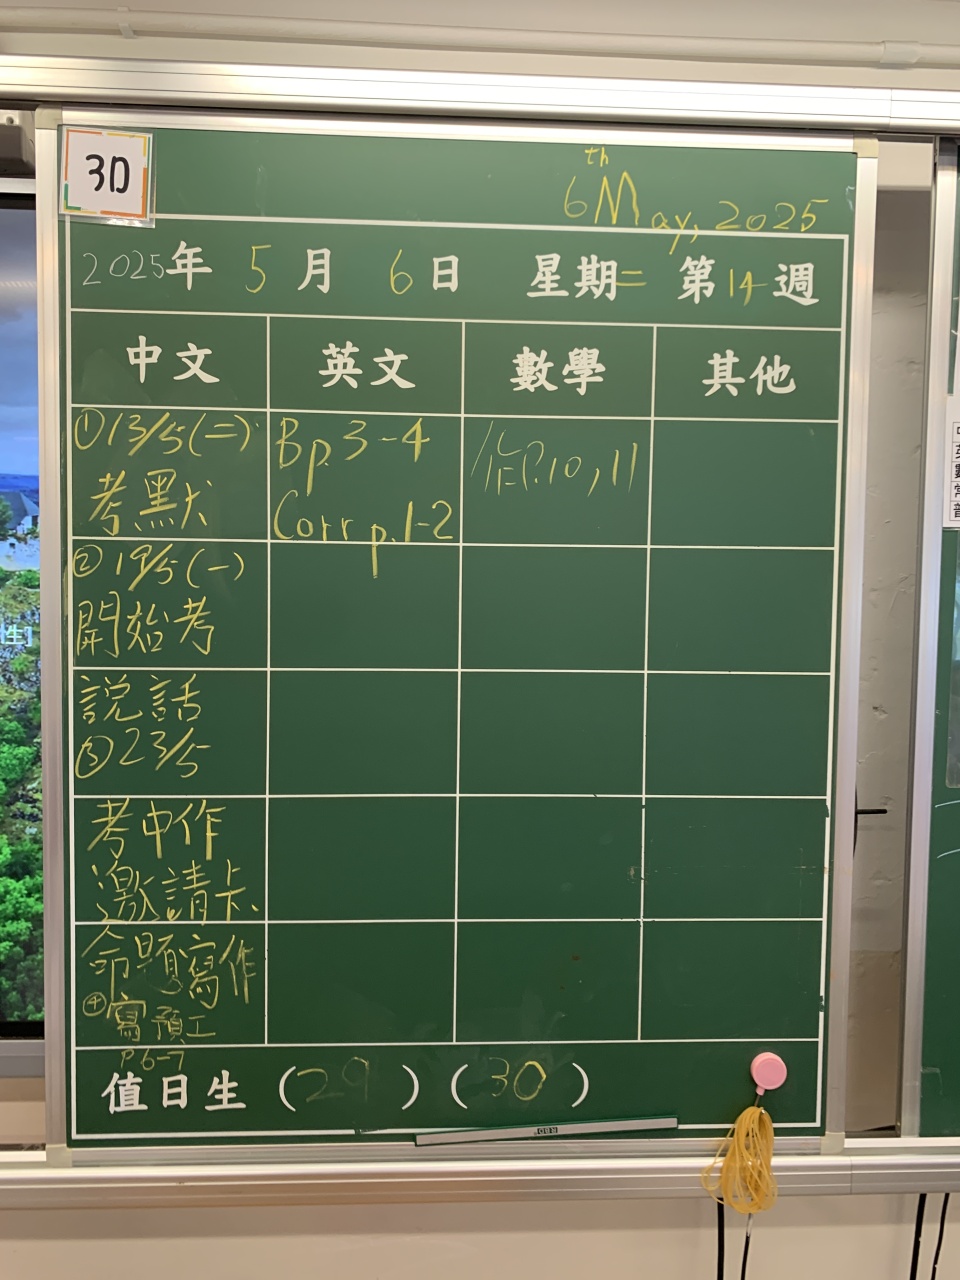 3D
6th May, 2025
2025年 5月 6日 星期二 第14週
中文 英文 數學 其他
①13/5(二)
考默
②19/5(一)
開始考
說話
③23/5
考中作
邀請卡、
命題寫作
④寫預工
P.6-7
Bp.3-4
Corr p.1-2
作P.10,11
值日生 (29) (30)